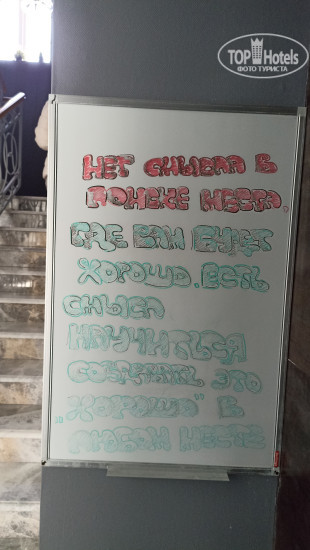 TOP Hotels
ФОТО ТУРИСТА
НЕТ СМЫСЛА В
ПОИСКЕ МЕСТА,
ГДЕ ВАМ БУДЕТ
ХОРОШО. ЕСТЬ
СМЫСЛ
НАУЧИТЬСЯ
СОЗДАВАТЬ ЭТО
„ХОРОШО" В
ЛЮБОМ МЕСТЕ